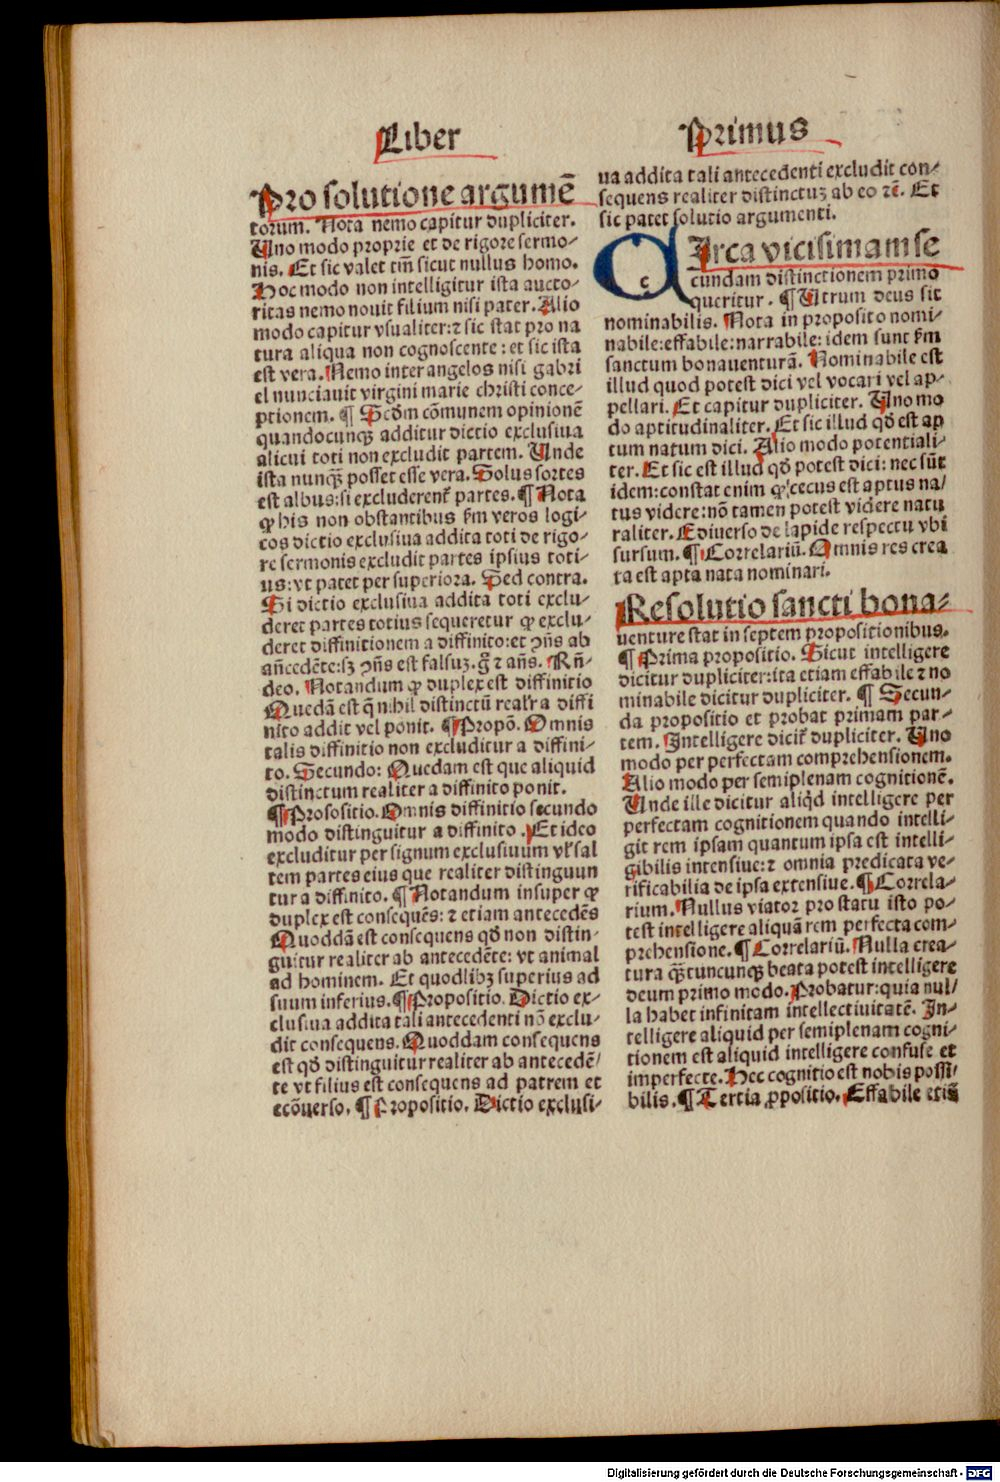 Liber
Primus
Pro solutione argumē
torum. Nota nemo capitur dupliciter.
Uno modo proprie et de rigore sermo-
nis. Et sic valet tm̄ sicut nullus homo.
Hoc modo non intelligitur ista aucto-
ritas nemo nouit filium nisi pater. Alio
modo capitur vsualiter: ⁊ sic stat pro na
tura aliqua non cognoscente: et sic ista
est vera. Nemo inter angelos nisi gabri
el nunciauit virgini marie christi conce-
ptionem. ¶ Scd̄m cōmunem opinionē
quandocunqꝫ additur dictio exclusiua
alicui toti non excludit partem. Unde
ista nunqꝫ̄ posset esse vera. Solus sortes
est albus: si excluderent᷑ partes. ¶ Nota
ꝙ his non obstantibus ẜm veros logi-
cos dictio exclusiua addita toti de rigo-
re sermonis excludit partes ipsius toti-
us: vt patet per superiora. Sed contra.
Si dictio exclusiua addita toti exclu-
deret partes totius sequeretur ꝙ exclu-
deret diffinitionem a diffinito: et ꝯn̄s ab
an̄cedēte: sꝫ ꝯn̄s est falsuꝫ. gͦ ⁊ an̄s. Rn̄-
deo. Notandum ꝙ duplex est diffinitio
Quedā est q̄ nihil distinctū realr̄ a diffi
nito addit vel ponit. ¶ Propō. Omnis
talis diffinitio non excluditur a diffini-
to. Secundo: Quedam est que aliquid
distinctum realiter a diffinito ponit.
¶ Prosositio. Omnis diffinitio secundo
modo distinguitur a diffinito. Et ideo
excluditur per signum exclusiuum vl̓ sal
tem partes eius que realiter distinguun
tur a diffinito. ¶ Notandum insuper ꝙ
duplex est consequēs: ⁊ etiam antecedēs
Quoddā est consequens qd̄ non distin-
guitur realiter ab antecedēte: vt animal
ad hominem. Et quodlibꝫ superius ad
suum inferius. ¶ Propositio. Dictio ex-
clusiua addita tali antecedenti nō exclu-
dit consequens. Quoddam consequens
est qd̄ distinguitur realiter ab antecedē-
te vt filius est consequens ad patrem et
ecōuerso. ¶ Propositio. Dictio exclusi-
ua addita tali antecedenti excludit con-
sequens realiter distinctuꝫ ab eo rē. Et
sic patet solutio argumenti.
CIrca vicisimam se
cundam distinctionem primo
queritur. ¶ Utrum deus sit
nominabilis. Nota in proposito nomi-
nabile: effabile: narrabile: idem sunt ẜm
sanctum bonauenturā. Nominabile est
illud quod potest dici vel vocari vel ap-
pellari. Et capitur dupliciter. Uno mo
do aptitudinaliter. Et sic illud qd̄ est ap
tum natum dici. Alio modo potentiali-
ter. Et sic est illud qd̄ potest dici: nec sūt
idem: constat enim ꝙ cecus est aptus na-
tus videre: nō tamen potest videre natu
raliter. Ediuerso de lapide respectu vbi
sursum. ¶ Correlariū. Omnis res crea
ta est apta nata nominari.
Resolutio sancti bona-
uenture stat in septem propositionibus.
¶ Prima propositio. Sicut intelligere
dicitur dupliciter: ita etiam effabile ⁊ no
minabile dicitur dupliciter. ¶ Secun-
da propositio et probat primam par-
tem. Intelligere dicit᷑ dupliciter. Uno
modo per perfectam comprehensionem.
Alio modo per semiplenam cognitionē.
Unde ille dicitur aliqd̓ intelligere per
perfectam cognitionem quando intelli-
git rem ipsam quantum ipsa est intelli-
gibilis intensiue: ⁊ omnia predicata ve-
rificabilia de ipsa extensiue. ¶ Correla-
rium. Nullus viator pro statu isto po-
test intelligere aliquā rem perfecta com-
prehensione. ¶ Correlariū. Nulla crea-
tura qꝫ̄tuncunqꝫ beata potest intelligere
deum primo modo. Probatur: quia nul-
la habet infinitam intellectiuitatē. In-
telligere aliquid per semiplenam cogni-
tionem est aliquid intelligere confuse et
imperfecte. Hec cognitio est nobis possi-
bilis. ¶ Tertia ꝓpositio. Effabile etiā
Digitalisierung gefördert durch die Deutsche Forschungsgemeinschaft - DFG